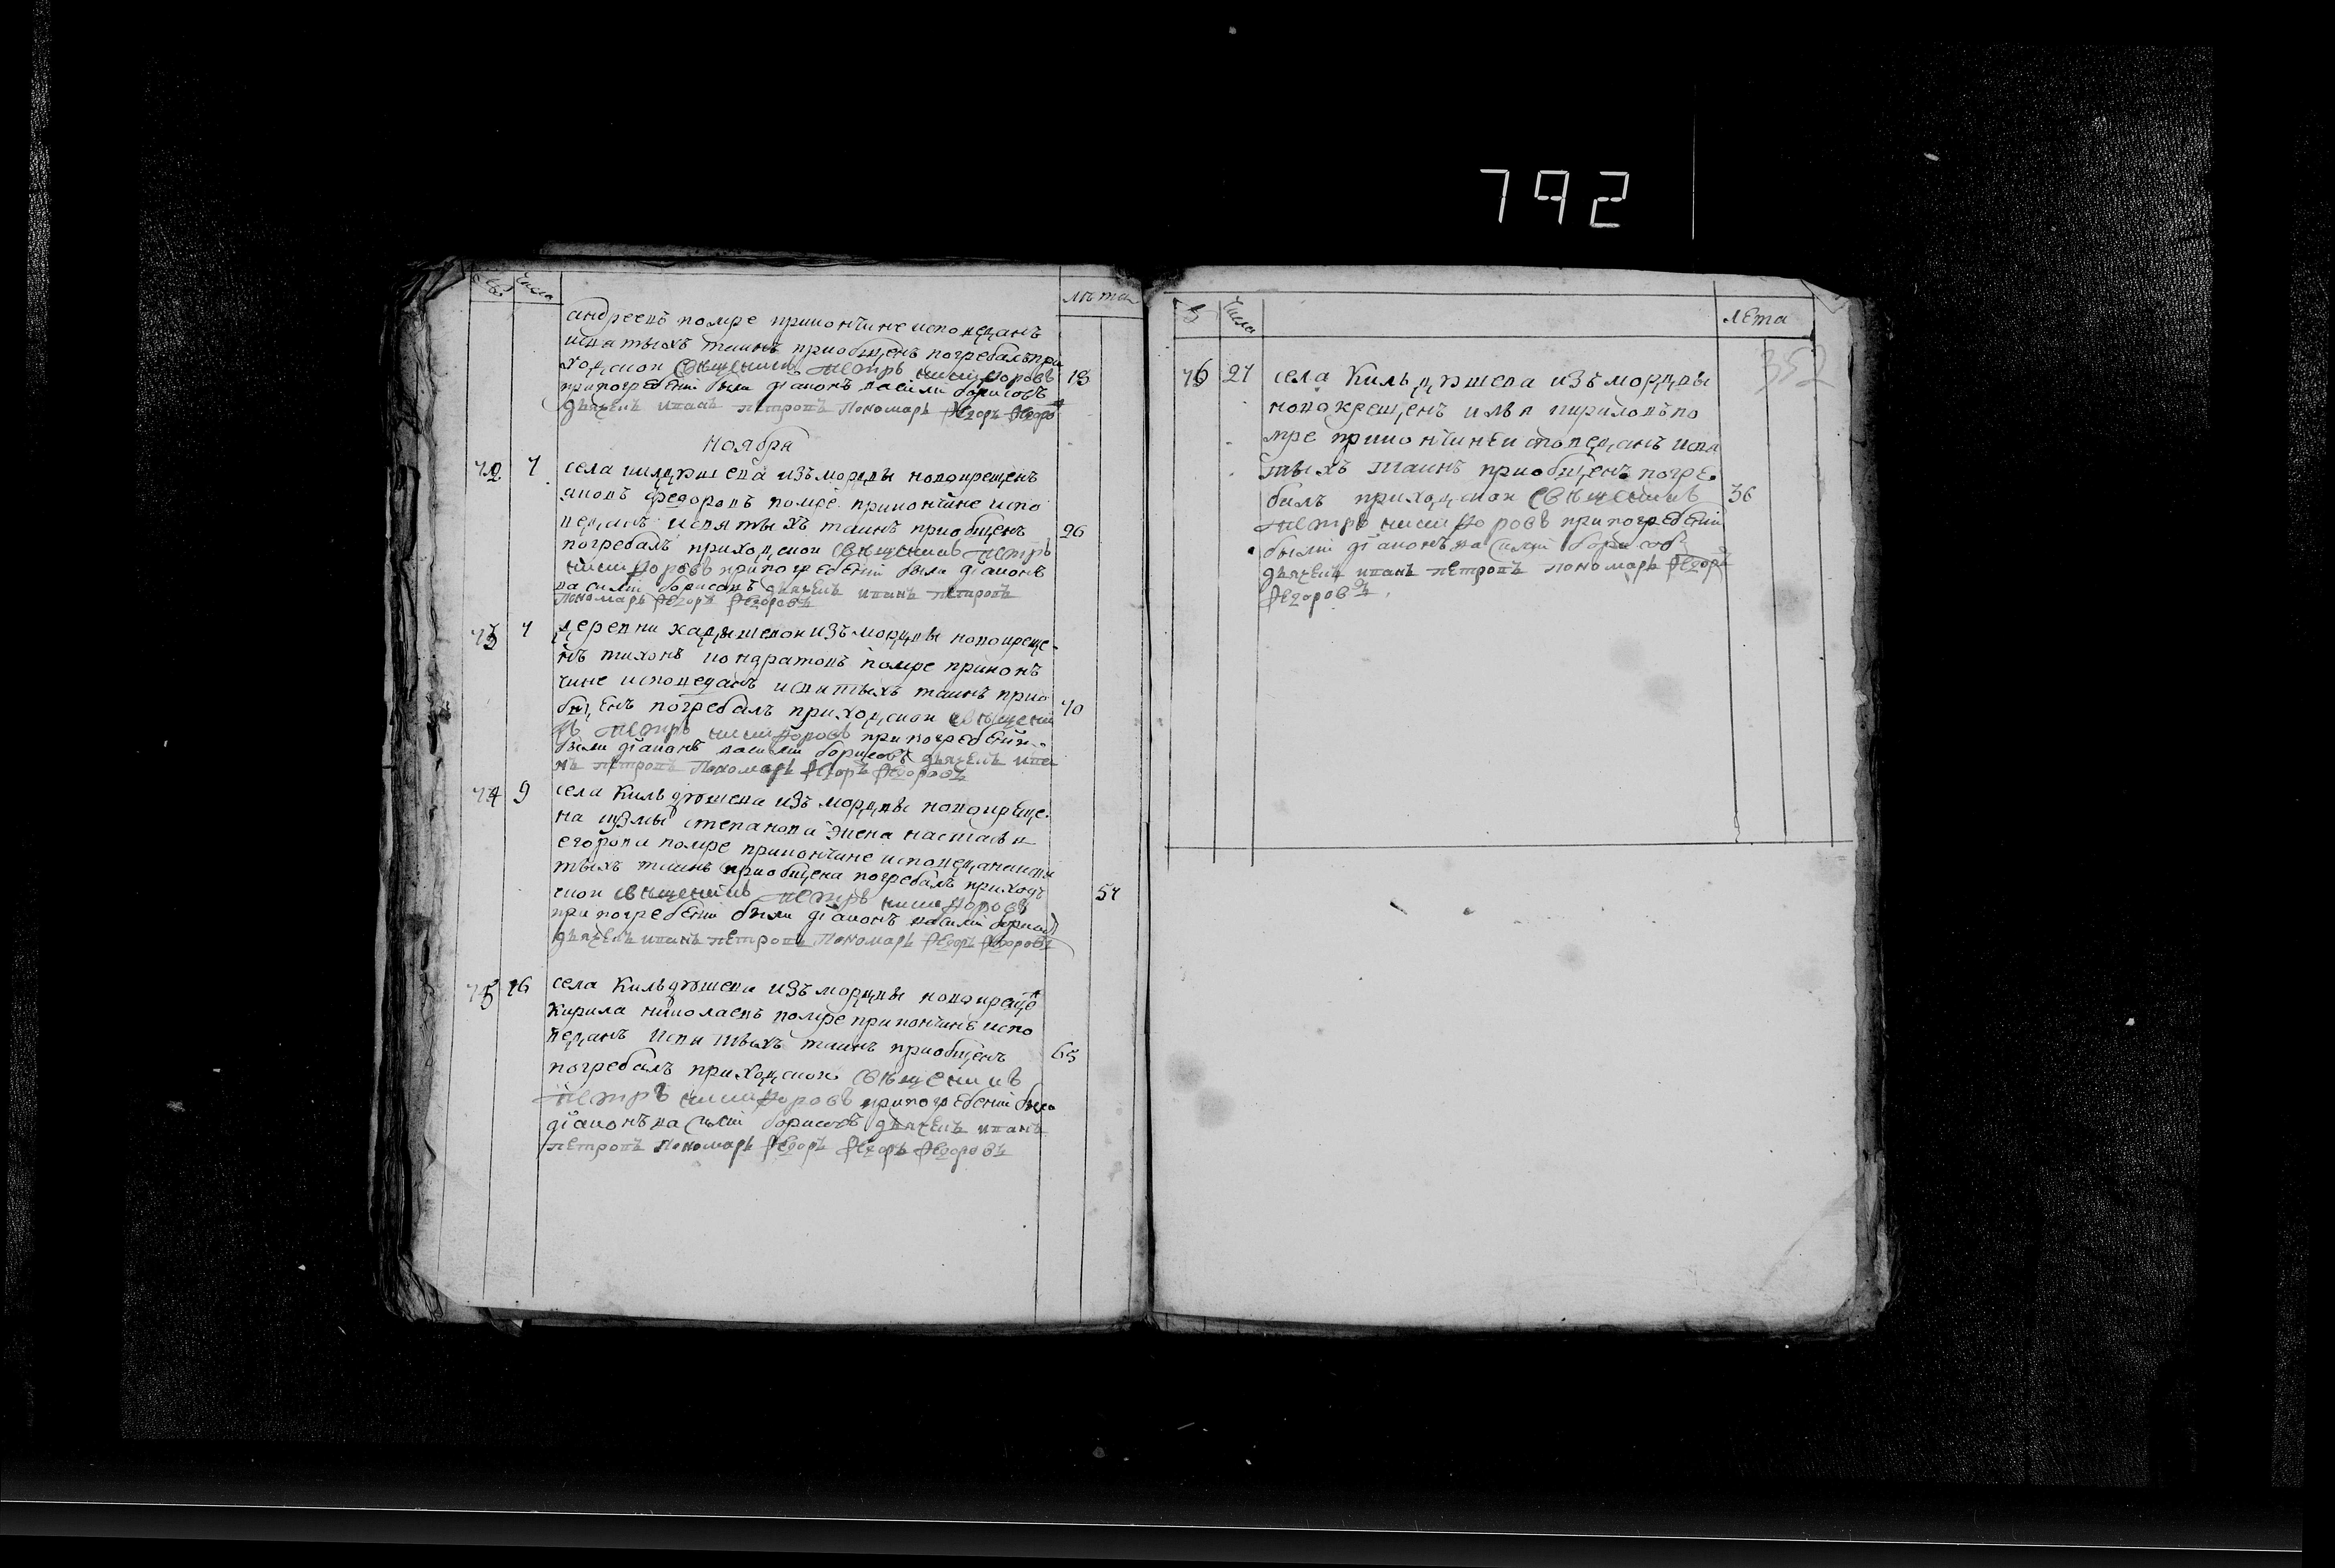 792
Числа
лѣта
андреевъ помре прикончине исповеданъ
исвятыхъ таинъ приобщенъ погребалъ при
ходской свѣщеникъ Петръ никифоровъ 13
припогребенiи были дiаконъ василiи борисовъ
дьячекъ иванъ петровъ Пономарь Федоръ Федоро
ноября
72 7 села килдюшева изъ мордвы новокрещенъ
яковъ федоровъ помре прикончине испо
веданъ исвятыхъ таинъ приобщенъ 26
погребалъ приходской свѣщеникъ Петръ
никифоровъ припогребенiи были дiаконъ
василiи борисовъ дьячекъ иванъ петровъ
Пономарь Федоръ Федоровъ
73 7 деревни кадышевои изъ мордвы новокреще
нъ тихонъ кондратовъ помре приконъ
чине исповеданъ исвятыхъ таинъ прио
бщенъ погребалъ приходской свѣщени 70
къ Петръ никифоровъ припогребенiи
были дiаконъ василiи борисовъ дьячекъ ива
нъ петровъ Пономарь Федоръ Федоровъ
74 9 села Кильдюшева изъ мордвы новокреще
на кузмы степанова жена настасья
егорова помре приконъчине исповеданаисвя
тыхъ таинъ приобщена погребалъ приход
ской свѣщеникъ Петръ никифоровъ 57
припогребенiи были дiаконъ василiи борисов
дьячекъ иванъ петровъ Пономарь Федоръ Федоровъ
75 16 села Кильдюшева изъ мордвы новокреще
кирила николаевъ помре приконъчине испо
веданъ исвятыхъ таинъ приобщенъ 65
погребалъ приходской свѣщеникъ
Петръ никифоровъ припогребенiи были
дiаконъ василiи борисовъ дьячекъ иванъ
петровъ Пономарь Федоръ Федоръ Федоровъ
Числа
лета
352
76 21 села Кильдюшева изъ мордвы
новокрещенъ илья кириловъ по
мре приконъчине исповеданъ исвя
тыхъ таинъ приобщенъ погре
балъ приходской свѣщеникъ 36
Петръ никифоровъ припогребенiи
были дiаконъ василiи борисовъ
дьячекъ иванъ петровъ пономарь Федоръ
Федоровъ